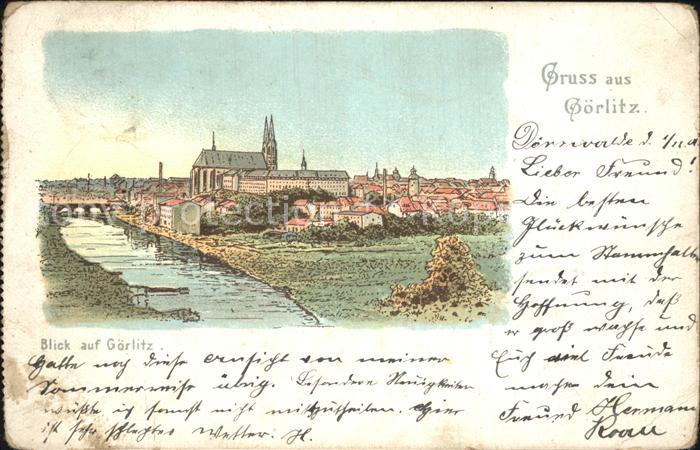 Gruss aus
Görlitz.
Dörrwalde d.
Lieber Freund!
Die besten
Glückwünsche
zum Stammhalter
sendet mit der
Hoffnung, daß
er groß wachse und
Euch viel Freude
mache dein
Freund Hermann
Blick auf Görlitz.
Hatte noch diese Ansicht von meiner
Sommerreise übrig. Besondere Neuigkeiten
wüßte ich sonst nicht mitzutheilen. Hier
ist sehr schlechtes Wetter. H.